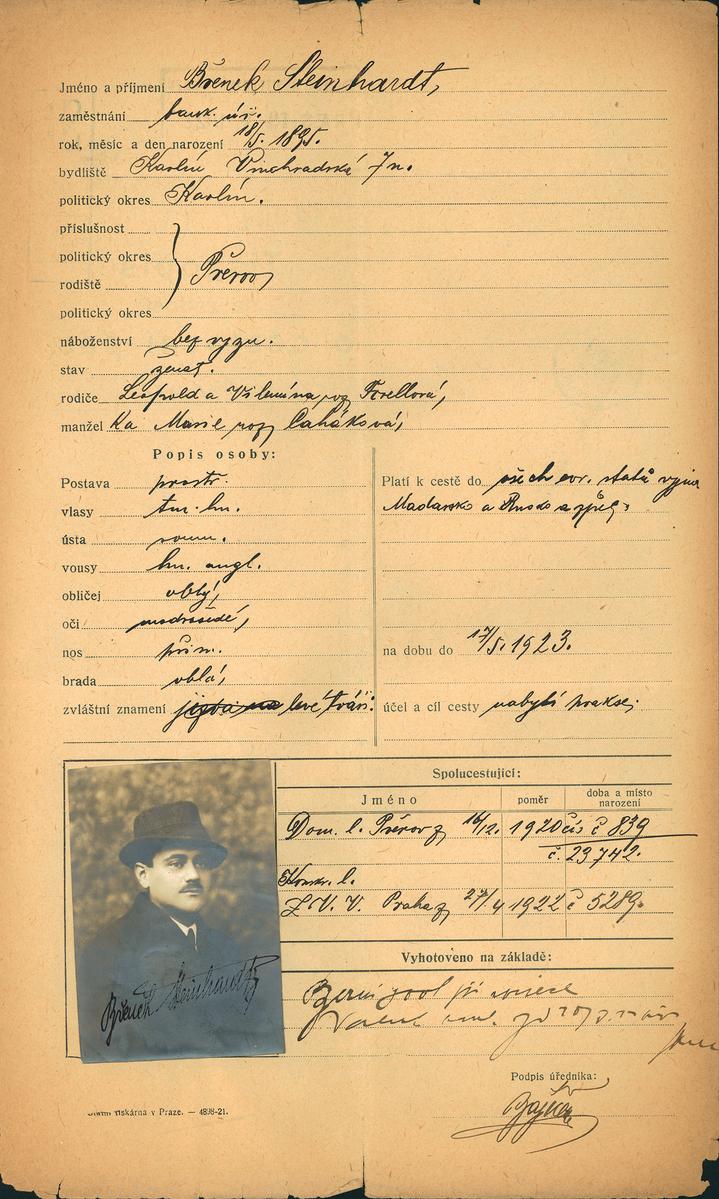 Jméno a příjmení Břenek Steinhardt,
zaměstnání bank. úř.
rok, měsíc a den narození 18/5. 1895.
bydliště Karlín Vinohradská 7n.
politický okres Karlín.
příslušnost
politický okres
rodiště Přerov
politický okres
náboženství bez vyzn.
stav ženat.
rodiče Leopold a Vilemína roz Forellová,
manžel ka Marie roz Caháková,
Popis osoby:
Postava prostř.
vlasy tm. hn.
ústa soum.
vousy hn. angl.
obličej oblý,
oči modrošedé,
nos přim.
brada oblá,
zvláštní znamení jizva na levé tváři.
Platí k cestě do všech evr. států vyjma
Maďarsko a Rusko a zpět
na dobu do 17/5. 1923.
účel a cíl cesty nabytí prakse,
Spolucestující:
Jméno poměr doba a místo narození
Dom. l. Přerov z 16/12. 1920 čís č 839
č. 23742.
Konkr. l.
Z. V. V. Praha z 27/4 1922 č 5289.
Vyhotoveno na základě:
Břenek Steinhardt
Podpis úředníka:
tiskárna v Praze. — 4898-21.